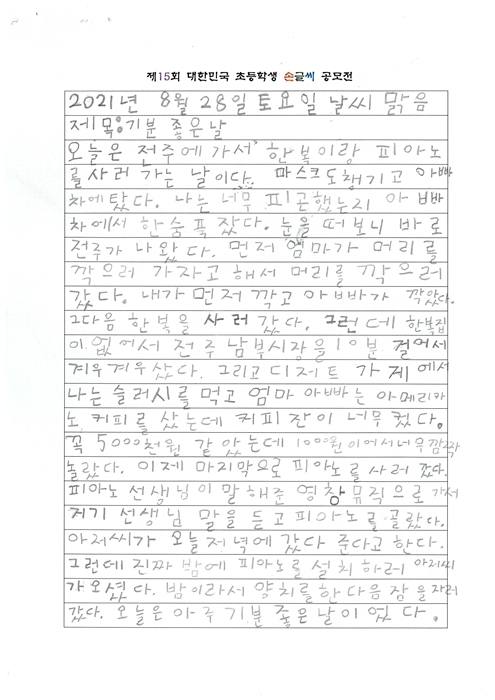 제15회 대한민국 초등학생 손글씨 공모전
2021년 8월 28일 토요일 날씨 맑음
제목:기분 좋은날
오늘은 전주에 가서 한복이랑 피아노
를 사러 가는 날이다. 마스크도챙기고 아빠
차에탔다. 나는 너무 피곤했는지 아빠
차에서 한숨 푹 잤다. 눈을 떠보니 바로
전주가 나왔다. 먼저 엄마가 머리를
깍으러 가자고 해서 머리를 깍으러
갔다. 내가 먼저 깍고 아빠가 깍았다.
그다음 한복을 사러 갔다. 그런데 한복집
이 없어서 전주 남부시장을 10분 걸어서
겨우겨우 샀다. 그리고 디저트 가게에서
나는 슬러시를 먹고 엄마 아빠는 아메리카
노 커피를 샀는데 커피잔이 너무 컸다.
꼭 5000천원 같았는데 1000원이어서너무깜짝
놀랐다. 이제 마지막으로 피아노를 사러 갔다.
피아노 선생님이 말해준 영창뮤직으로 가서
저기 선생님 말을 듣고 피아노를 골랐다.
아저씨가 오늘 저녁에 갔다 준다고 한다.
그런데 진짜 밤에 피아노를 설치하러 아저씨
가 오셨다. 밤이라서 양치를 한 다음 잠을 자러
갔다. 오늘은 아주 기분 좋은 날이였다.